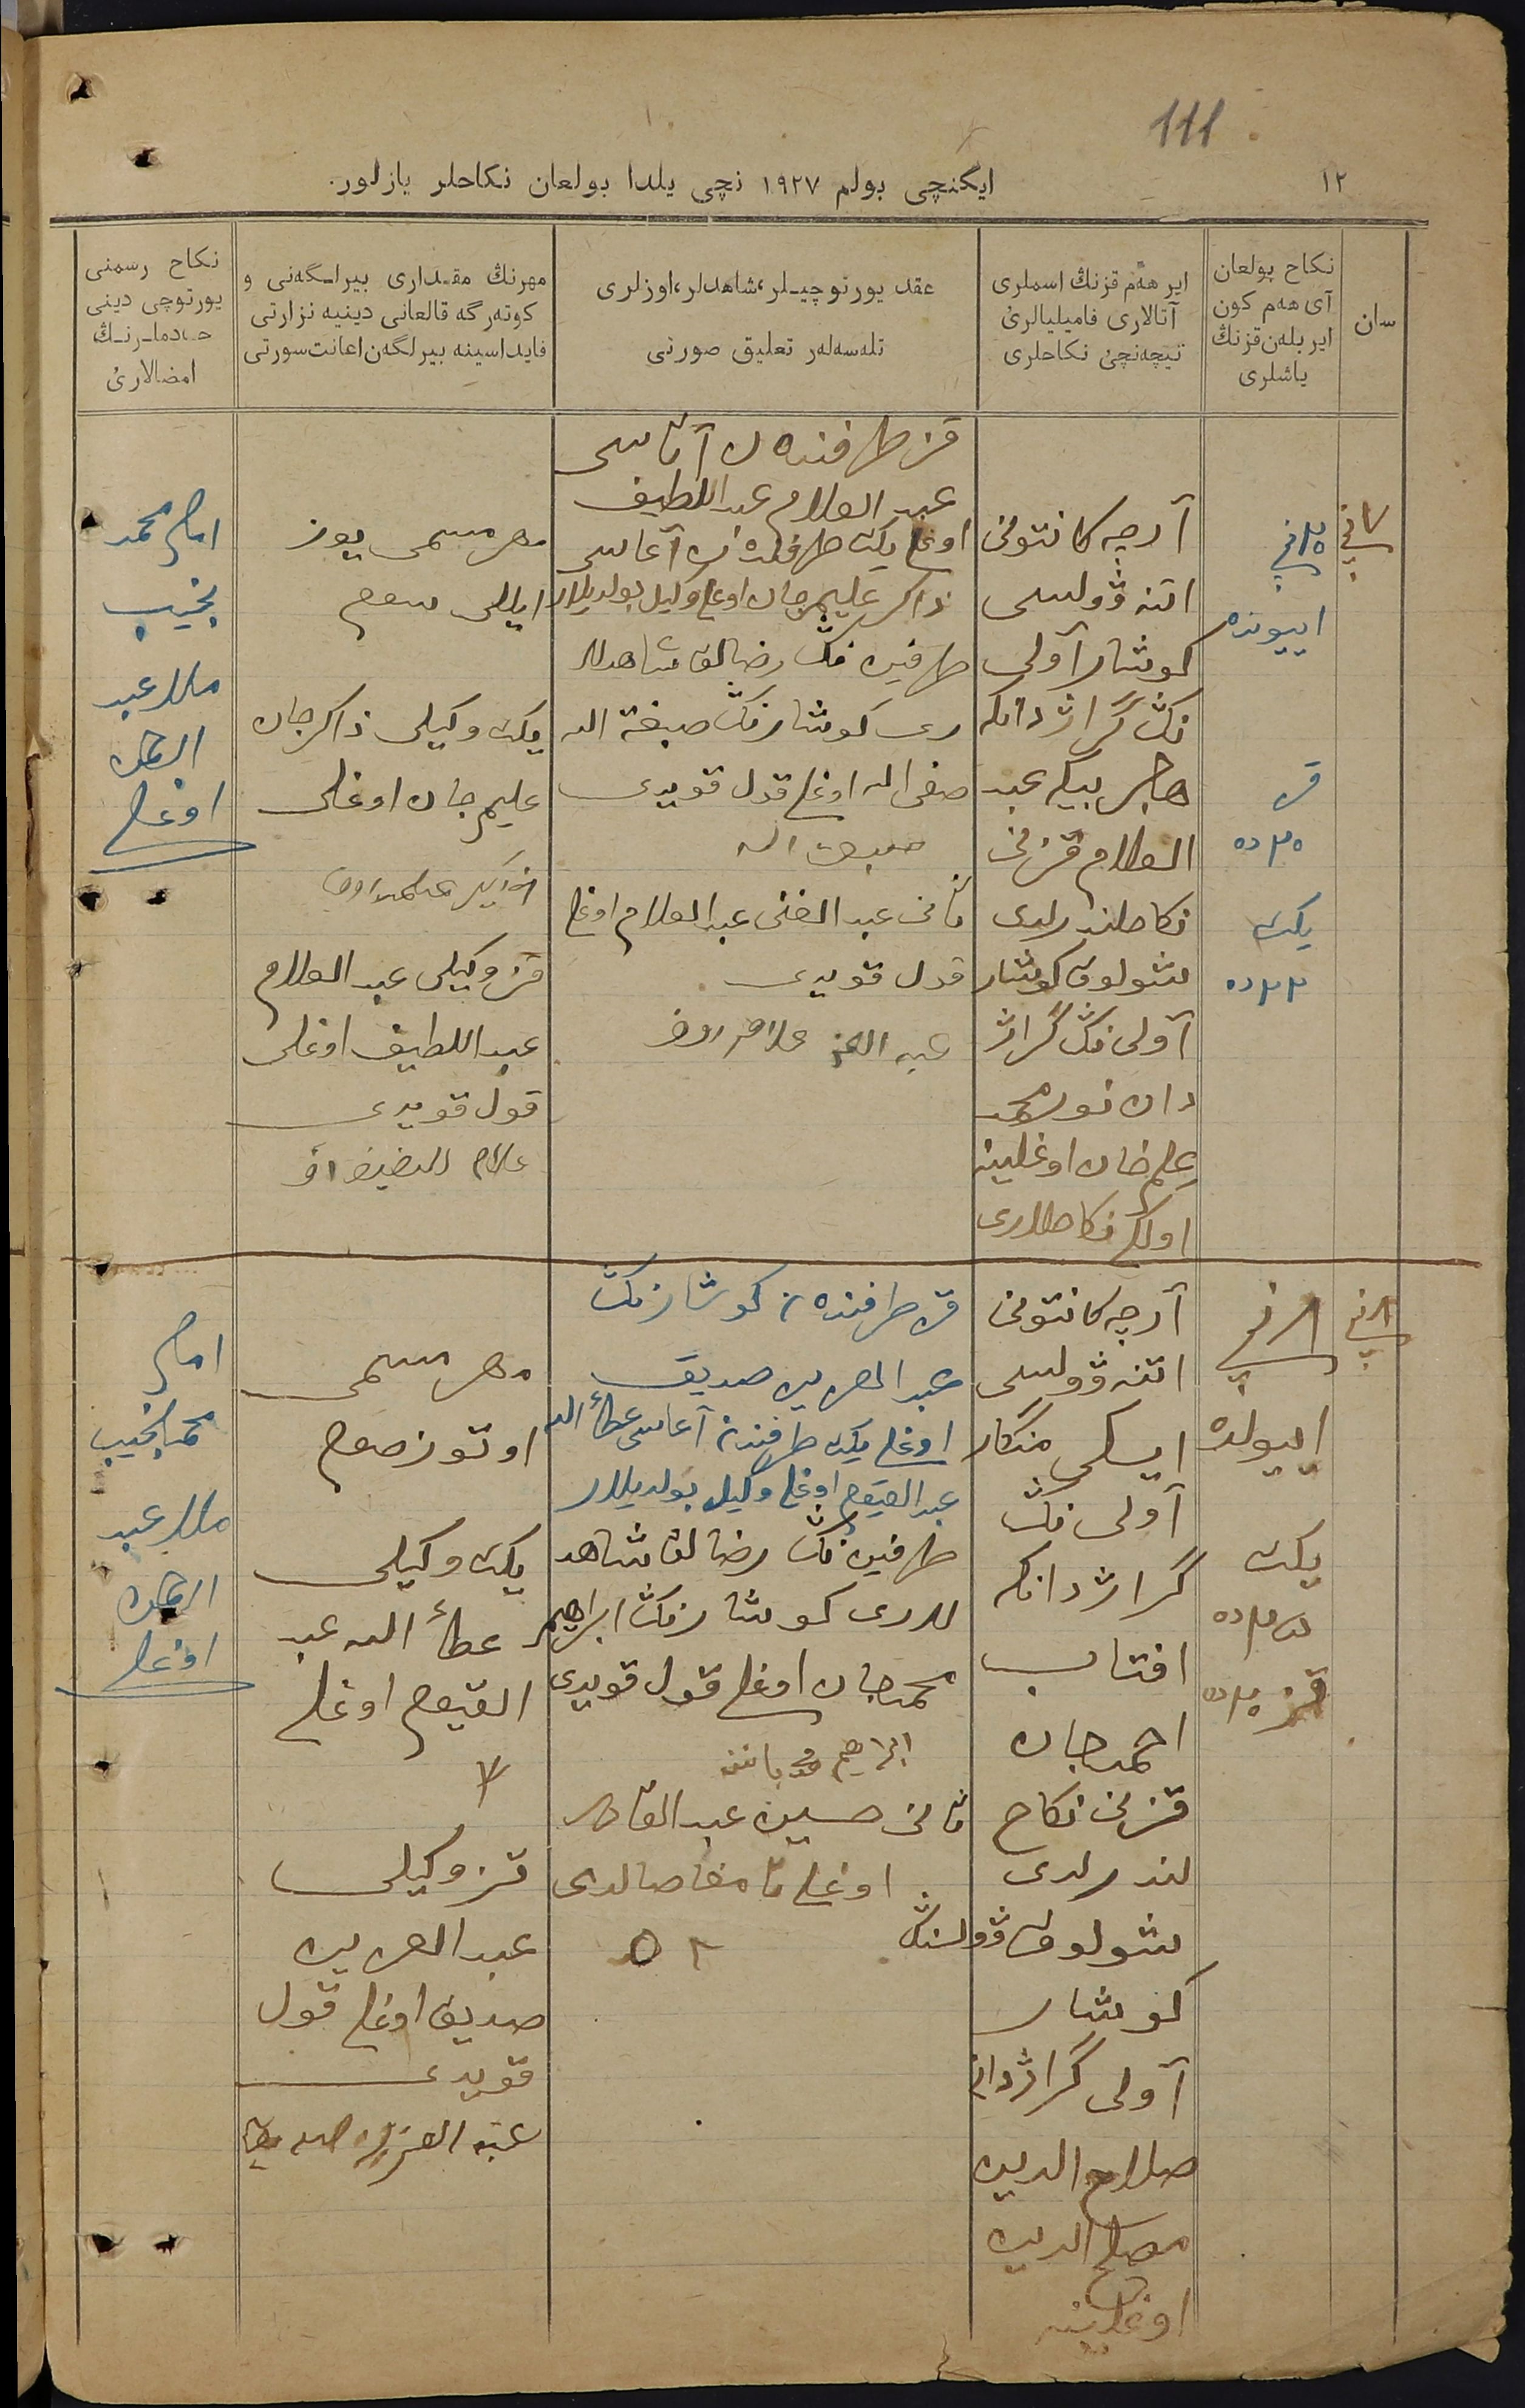 111
١٢
ایکنچی بولم ١٩٢٧ نچی یلدا بولعان نکاحلر یازلور.
سان
نکاح بولعان
آی هەم کون
ایر بلەن قزنڭ
یاشلری
ایر هەم قزنڭ اسملری
آتالاری فامیلیالری
نیچەنچی نکاحلری
عقد یورتوچیـلر، شاهدلر، اوزلری
تلەسەلەر تعلیق صورتی
مهرنڭ مقـداری بیرلـگەنی و
کوتەرگە قالعانی دینیە نزارتی
فایداسینە بیرلگەن اعانت سورتی
نکاح رسمنی
یورتوچی دینی
خادملـرنـڭ
امضالاری
٧ نچی
اییونده
قز
٢٠ ده
یکت
٢٢ ده
آرچه کانتونی
اتنه ۋولسی
کوشار آولی
نڭ گراژدانکه
هاجر بیکه عبد
العلام قزنی
نکاحلندرلدی
شولوق کوشار
آولی نڭ گراژ
دان نور محمد
علیم خان اوغلینه
اولگی نکاحلاری
قز طرفندەن آتاسی
عبد العلام عبد اللطیف
اوغلی یکت طرفندەن آغاسی
ذاکر علیمجان اوغلی وکیل بولدیلار
طرفین نڭ رضالق شاهدلا
ری کوشارنڭ صبغة الله
صفی الله اوغلی قول قویدی
صبغت الله
ثانی عبد الغنی عبد العلام اوغلی
قول قویدی
مهر مسمی یوز
ایللی سوم
یکت وکیلی ذاکرجان
علیمجان اوغلی
قز وکیلی عبد العلام
عبد اللطیف اوغلی
قول قویدی
امام محمد
نجیب
ملا عبد
الرحمن
اوغلی
٨ نچی
٨ نچی
اییولده
یکت
قز ٢٥ ده
آرچه کانتونی
اتنه ۋولسی
ایسکی منگار
آولی نڭ
گراژدانکه
افتاب
احمدجان
قزنی نکاح
لندرلدی
شولوق ۋولسنڭ
کوشار
آولی گراژدانی
صلاح الدین
مصلح الدین
اوغلینه
قز طرفندەن کوشارنڭ
عبد العزیز صدیق
اوغلی یکت طرفندن آغاسی عطاء الله
عبد القیوم اوغلی وکیل بولدیلار
طرفین نڭ رضالق شاهد
لاری کوشارنڭ ابراهیم
محمدجان اوغلی قول قویدی
ثانی حسین عبد القادر
اوغلی تامغا صالدی
مهر مسمی
اوتوز صوم
یکت وکیلی
عطاء الله عبد
القیوم اوغلی
قز وکیلی
عبد العزیز
صدیق اوغلی قول
قویدی
امام
محمد نجیب
ملا عبد
الرحمن
اوغلی